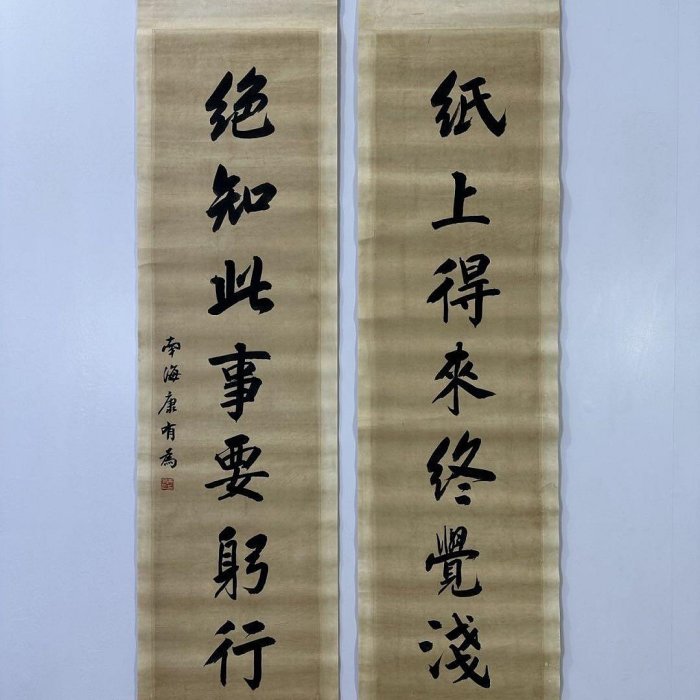 紙上得來終覺淺
绝知此事要躬行
南海康有為